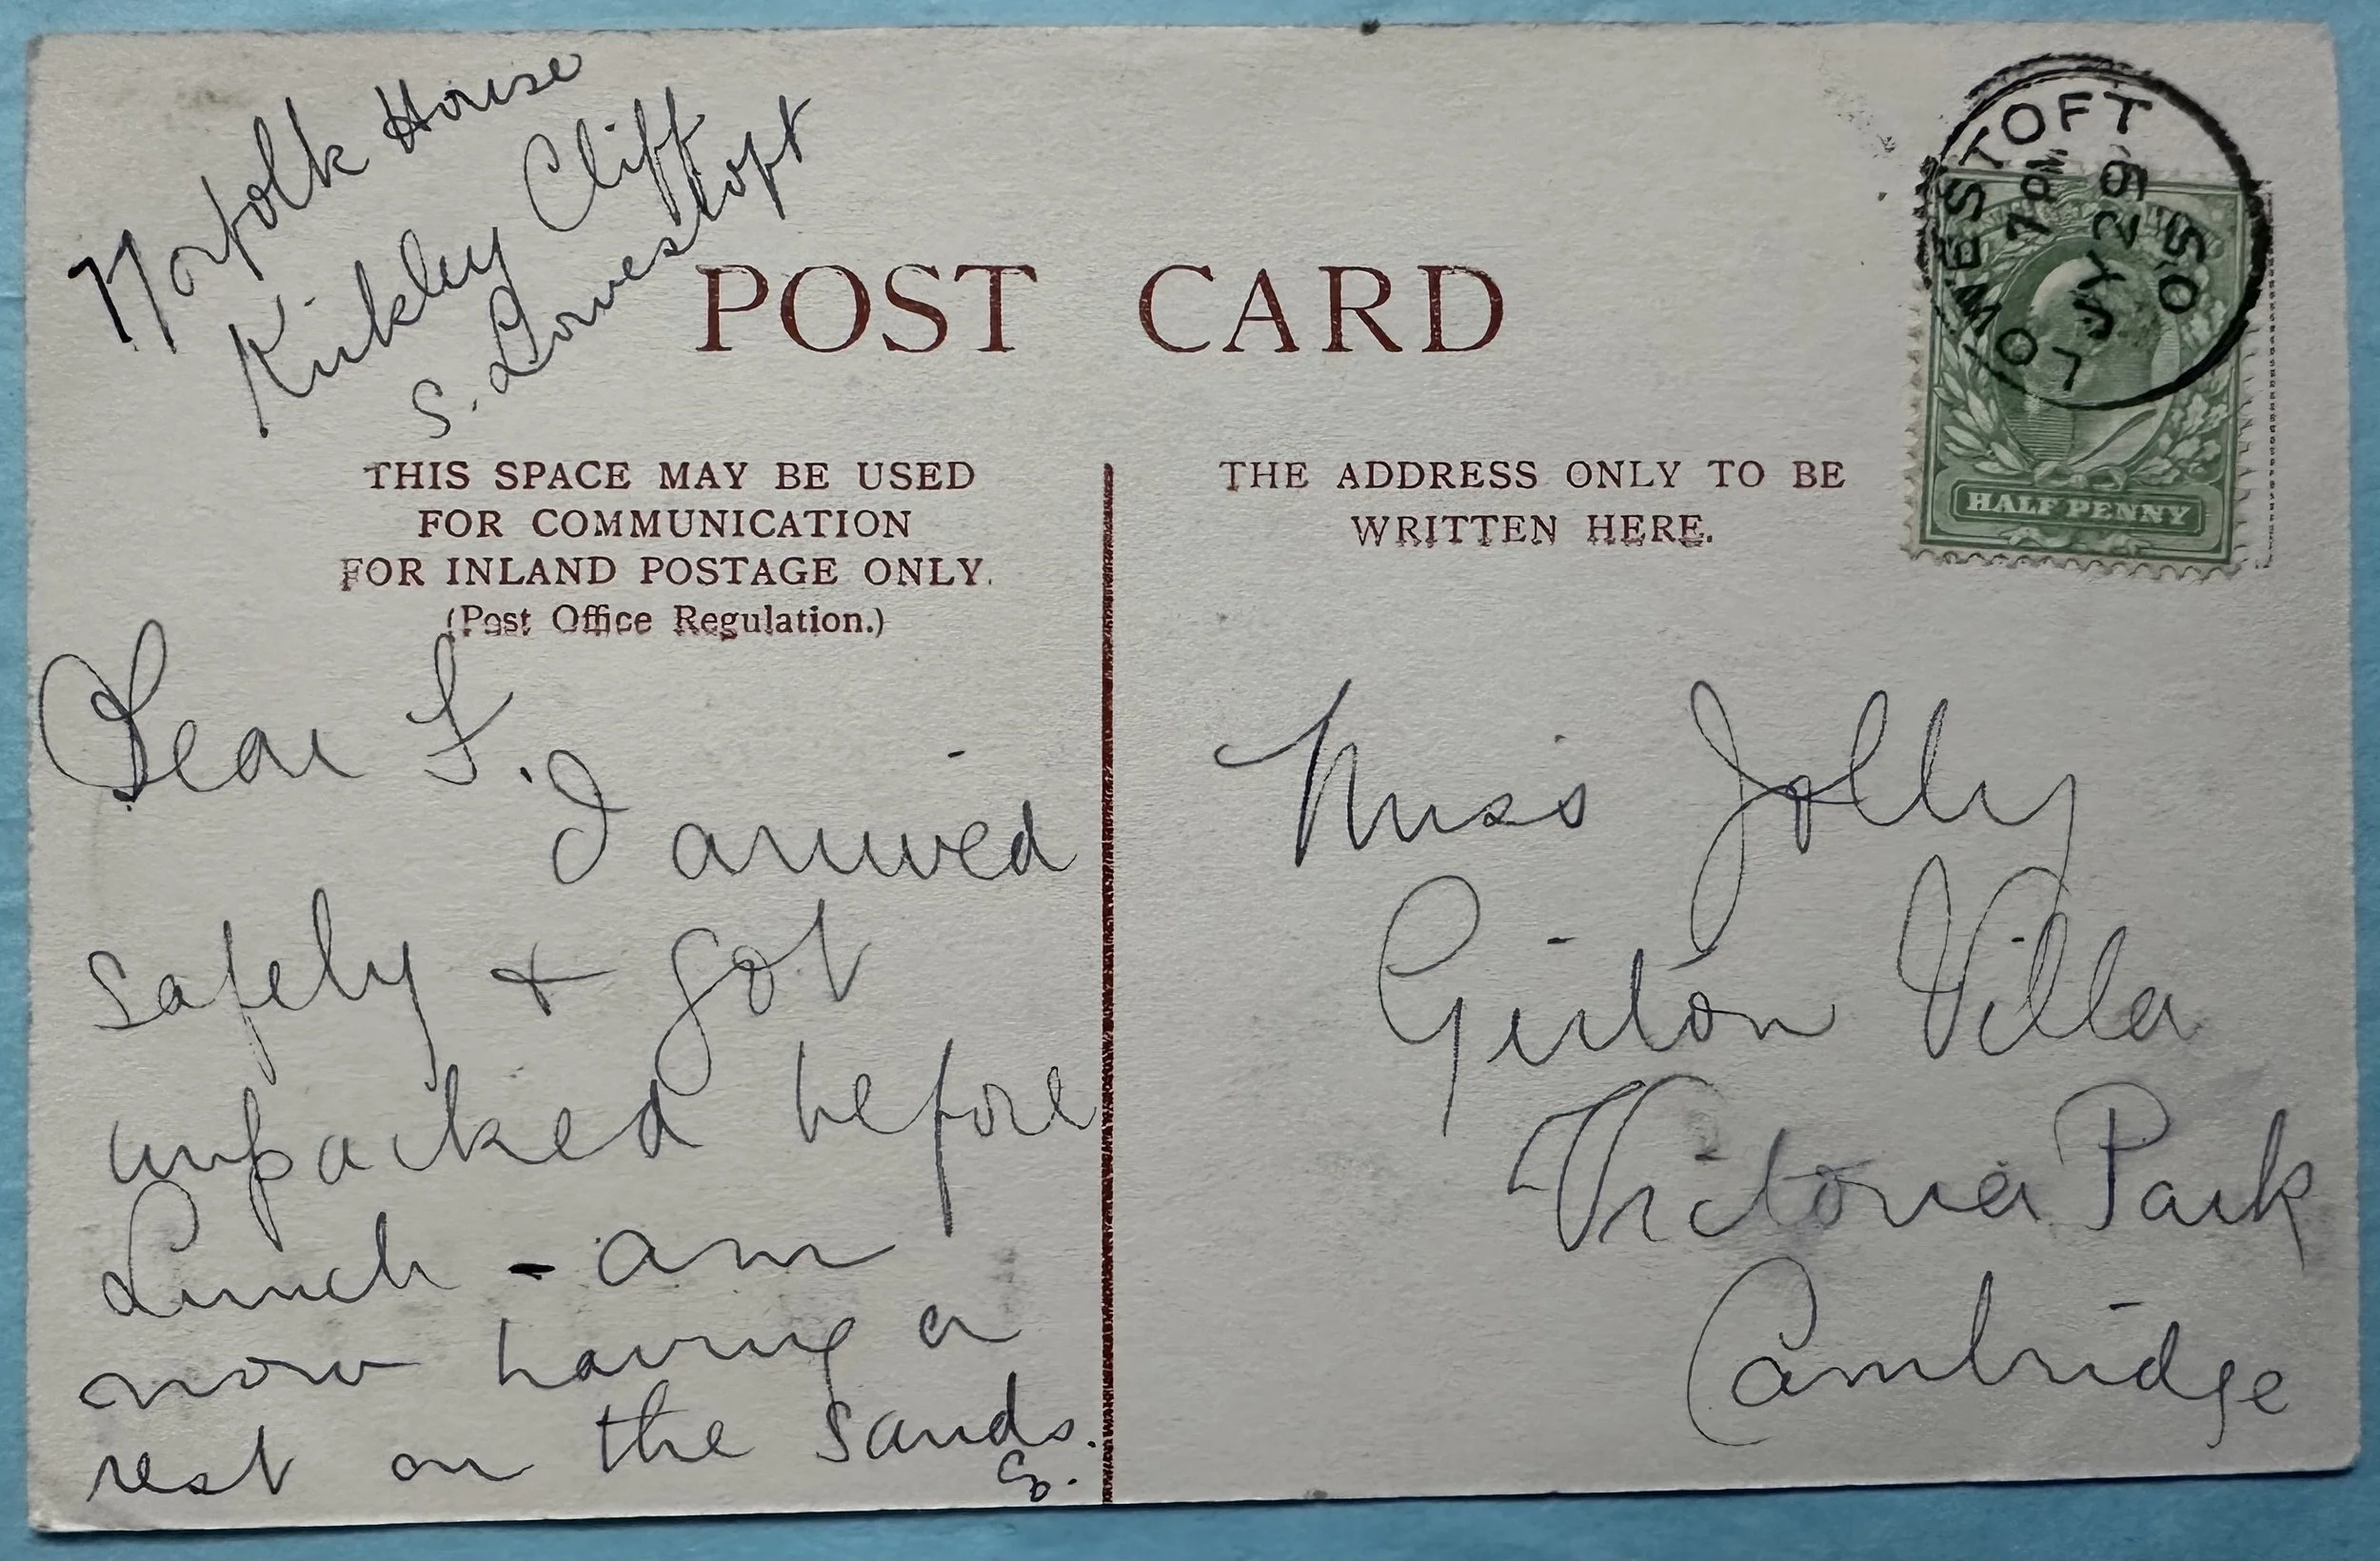 Norfolk House
Kirkley Cliff
S. Lowestoft
POST CARD
THIS SPACE MAY BE USED
FOR COMMUNICATION
FOR INLAND POSTAGE ONLY.
(Post Office Regulation.)
Dear F.
I arrived
safely & got
unpacked before
Lunch - am
now having a
rest on the sands.
G.
THE ADDRESS ONLY TO BE
WRITTEN HERE.
LOWESTOFT
7 PM
JY 26
05
HALFPENNY
Miss Jolly
Girton Villa
Victoria Park
Cambridge